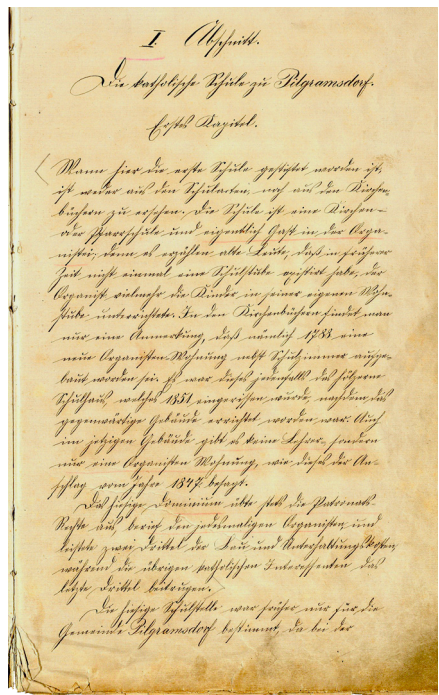 I. Abschnitt.
Die katholische Schule zu Pilgramsdorf.
Erstes Kapitel.
Wann hier die erste Schule gestiftet worden ist,
ist weder aus den Schulacten, noch aus den Kirchen-
büchern zu ersehen. Die Schule ist eine Kirchen-
oder Pfarrschule und eigentlich Gast in der Orga-
nistei, denn es erzählen alte Leute, daß in früherer
Zeit nicht einmal eine Schulstube existirt habe, der
Organist vielmehr die Kinder in seiner eigenen Wohn-
stube unterrichtete. In den Kirchenbüchern findet man
nur eine Anmerkung, daß nämlich 1788 eine
neue Organisten-Wohnung nebst Schulzimmer aufge-
baut worden sei. Es war dieses jedenfalls das hölzerne
Schulhaus, welches 1851 eingerissen wurde, nachdem das
gegenwärtige Gebäude errichtet worden war. Auch
im jetzigen Gebäude gibt es keine Lehrer-, sondern
nur eine Organisten Wohnung, wie dieses der An-
schlag vom Jahre 1847 besagt.
Das hiesige Dominium übte stets die Patronats-
Rechte aus, berief den jedesmaligen Organisten und
leistete zwei Drittel der Bau und Unterhaltungskosten,
während die übrigen katholischen Interessenten das
letzte Drittel beitrugen.
Die hiesige Schulstelle war früher nur für die
Gemeinde Pilgramsdorf bestimmt, da bei der